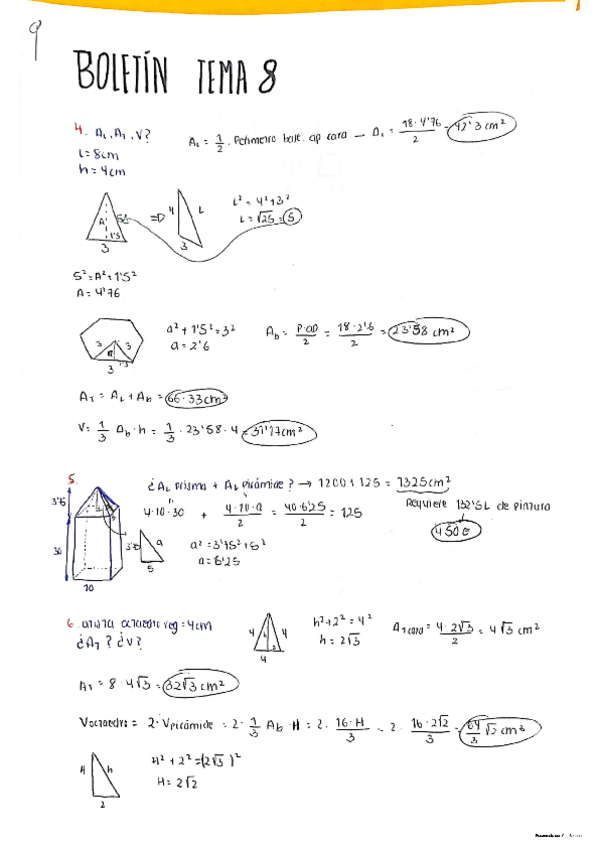 9
BOLETÍN TEMA 8
4. AL, AT, V?
l = 8cm
h = 4cm
AL = 1/2 · Perímetro base · ap cara — AL = 18·4'76/2 = 42'3 cm²
4 L 3
L² = 4²+3²
L = √25 = 5
A 1'5 3
5² = A²+1'5²
A = 4'76
3 3 a 3 1'5
a² + 1'5² = 3²
a = 2'6
Ab = P·ap/2 = 18·2'6/2 = 23'58 cm²
AT = AL + Ab = 66.33 cm²
V = 1/3 Ab · h = 1/3 · 23'58 · 4 = 31'77cm²
5.
¿AL prisma + AL pirámide? → 1200 + 125 = 1325cm²
4·10·30 + 4·10·a/2 = 40·6'25/2 = 125
Requiere 132'5L de pintura
450€
3'75 30 10
3'75 a 5
a² = 3'75²+5²
a = 6'25
6. arista octaedro reg = 4cm
¿AT? ¿V?
4 h 4 4
h²+2² = 4²
h = 2√3
A1cara = 4·2√3/2 = 4√3 cm²
AT = 8·4√3 = 32√3 cm²
Voctaedro = 2·Vpirámide = 2·1/3 Ab·H = 2·16·H/3 = 2·16·2√2/3 = 64/3 √2 cm³
H h 2
H² + 2² = (2√3)²
H = 2√2